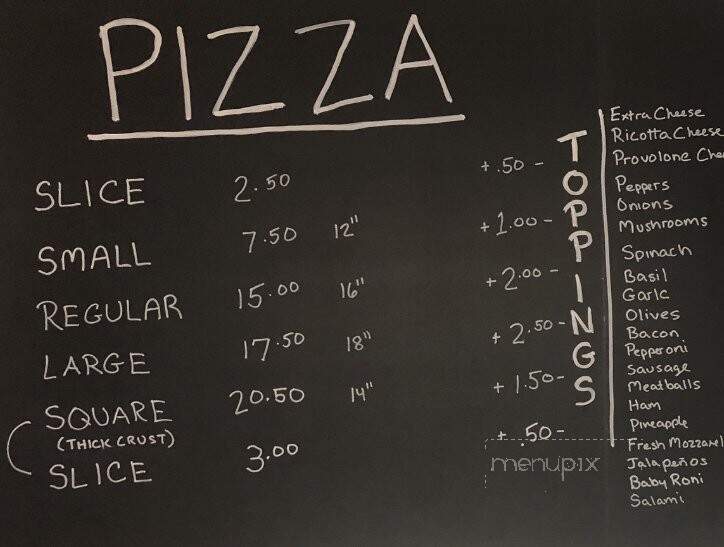 PIZZA
SLICE 2.50 +.50-
SMALL 7.50 12" +1.00-
REGULAR 15.00 16" +2.00-
LARGE 17.50 18" +2.50-
SQUARE 20.50 14" +1.50-
(THICK CRUST)
SLICE 3.00 +.50-
TOPPINGS
Extra Cheese
Ricotta Cheese
Provolone Che
Peppers
Onions
Mushrooms
Spinach
Basil
Garlc
Olives
Bacon
Pepperoni
Sausage
Meatballs
Ham
Pineapple
Fresh Mozzarel
Jalapeños
Baby Roni
Salami
menupix